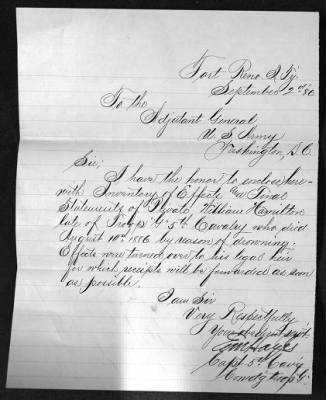 Fort Reno I. Ty.
September 2nd 86
To the
Adjutant General
U. S. Army
Washington, D. C.
Sir;
I have the honor to enclose here-
with Inventory of Effects and Final
Statements of Private William Hamilton
late of Troop "G" 5th Cavalry who died
August 10th 1886 by reason of drowning.
Effects were turned over to his legal heir
for which receipts will be forwarded as soon
as possible.
I am Sir
Very Respectfully
Your obedient servt.
Capt 5th Cav'y
Comdg Troop G.